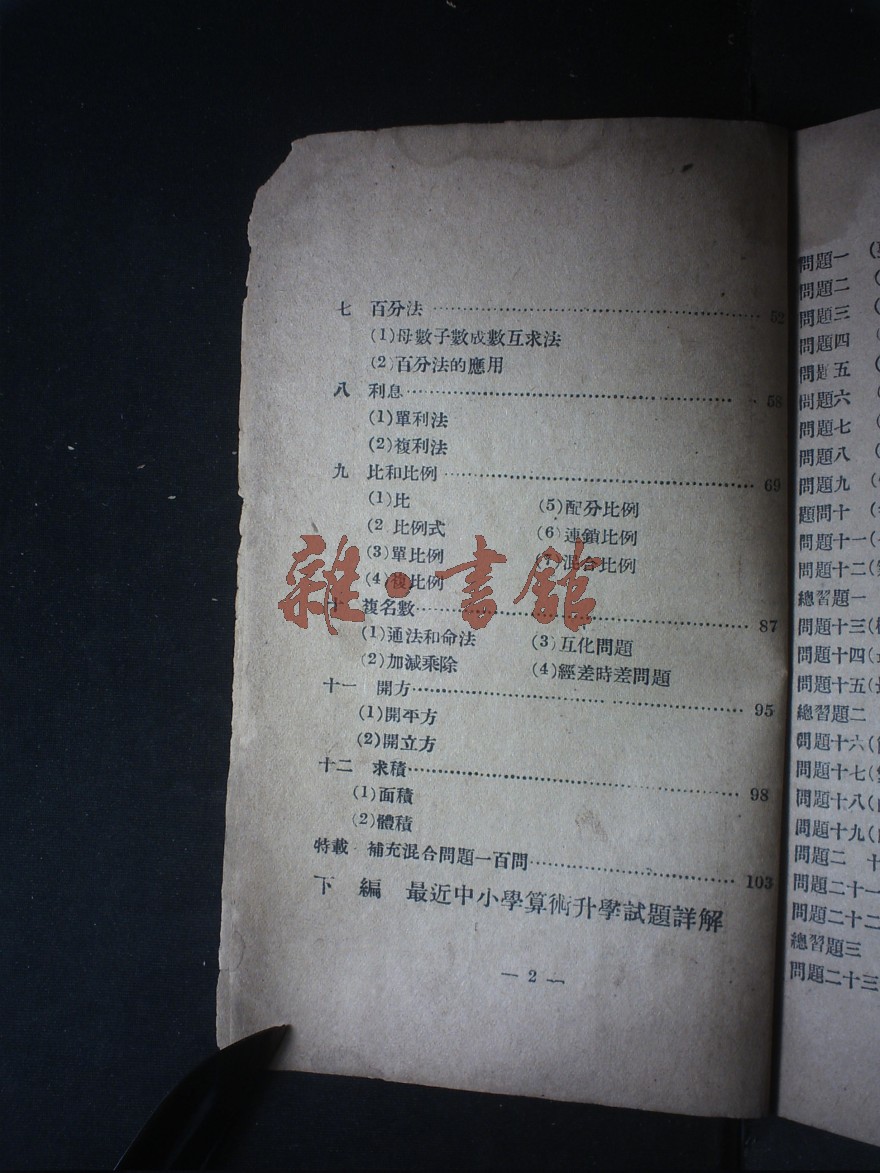 七 百分法 52
(1)母數子數成數互求法
(2)百分法的應用
八 利息 58
(1)單利法
(2)複利法
九 比和比例 69
(1)比 (5)配分比例
(2 比例式 (6)連鎖比例
(3)單比例 (7)混合比例
(4)複比例
十 複名數 87
(1)通法和命法 (3)互化問題
(2)加減乘除 (4)經差時差問題
十一 開方 95
(1)開平方
(2)開立方
十二 求積 98
(1)面積
(2)體積
特載 補充混合問題一百問 103
下 編 最近中小學算術升學試題詳解
— 2 —
雜·書館
問題一
問題二
問題三
問題四
問題五
問題六
問題七
問題八
問題九
題問十
問題十一
問題十二
總習題一
問題十三
問題十四
問題十五
總習題二
問題十六
問題十七
問題十八
問題十九
問題二十
問題二十一
問題二十二
總習題三
問題二十三